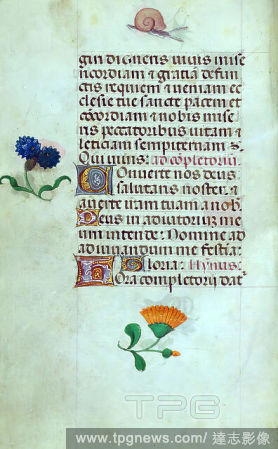 gni dignens vivis mise
ricordiam ⁊ gratiā defun
ctis requiem ⁊ veniam ec
clesie tue sancte pacem et
concordiam ⁊ nobis mise
ris peccatoribus vitam ⁊
leticiam sempiternam.
Qui vivis: ad cōpletoriū
Onverte nos deus
salutaris noster: ⁊
averte iram tuam a nob.
Deus in adiutoriū me
um intende: Domine ad
ad iuvandum me festia:
Gloria: Hynus:
ora completorij dat
TPG
www.tpgnews.com/達志影像